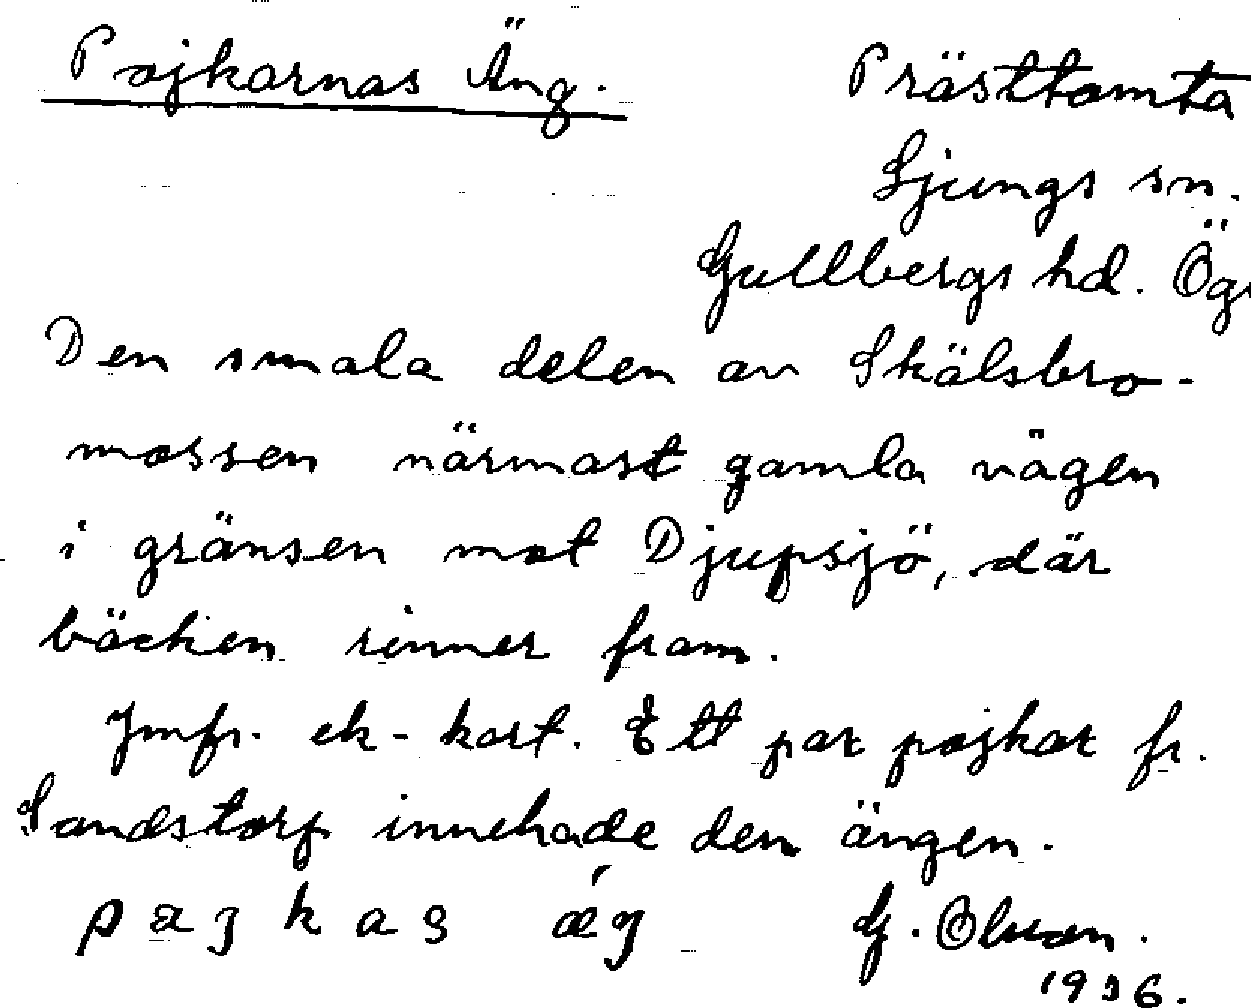 Pojkarnas Äng. Prästtomta
Ljungs sn.
Gullbergs hd. Ög
Den smala delen av Skälsbro-
mossen närmast gamla vägen
i gränsen mot Djupsjö, där
bäcken rinner fram.
Jmfr. ek-kart. Ett par pojkar fr.
Sandstorp innehade den ängen.
G. Olsson.
1936.